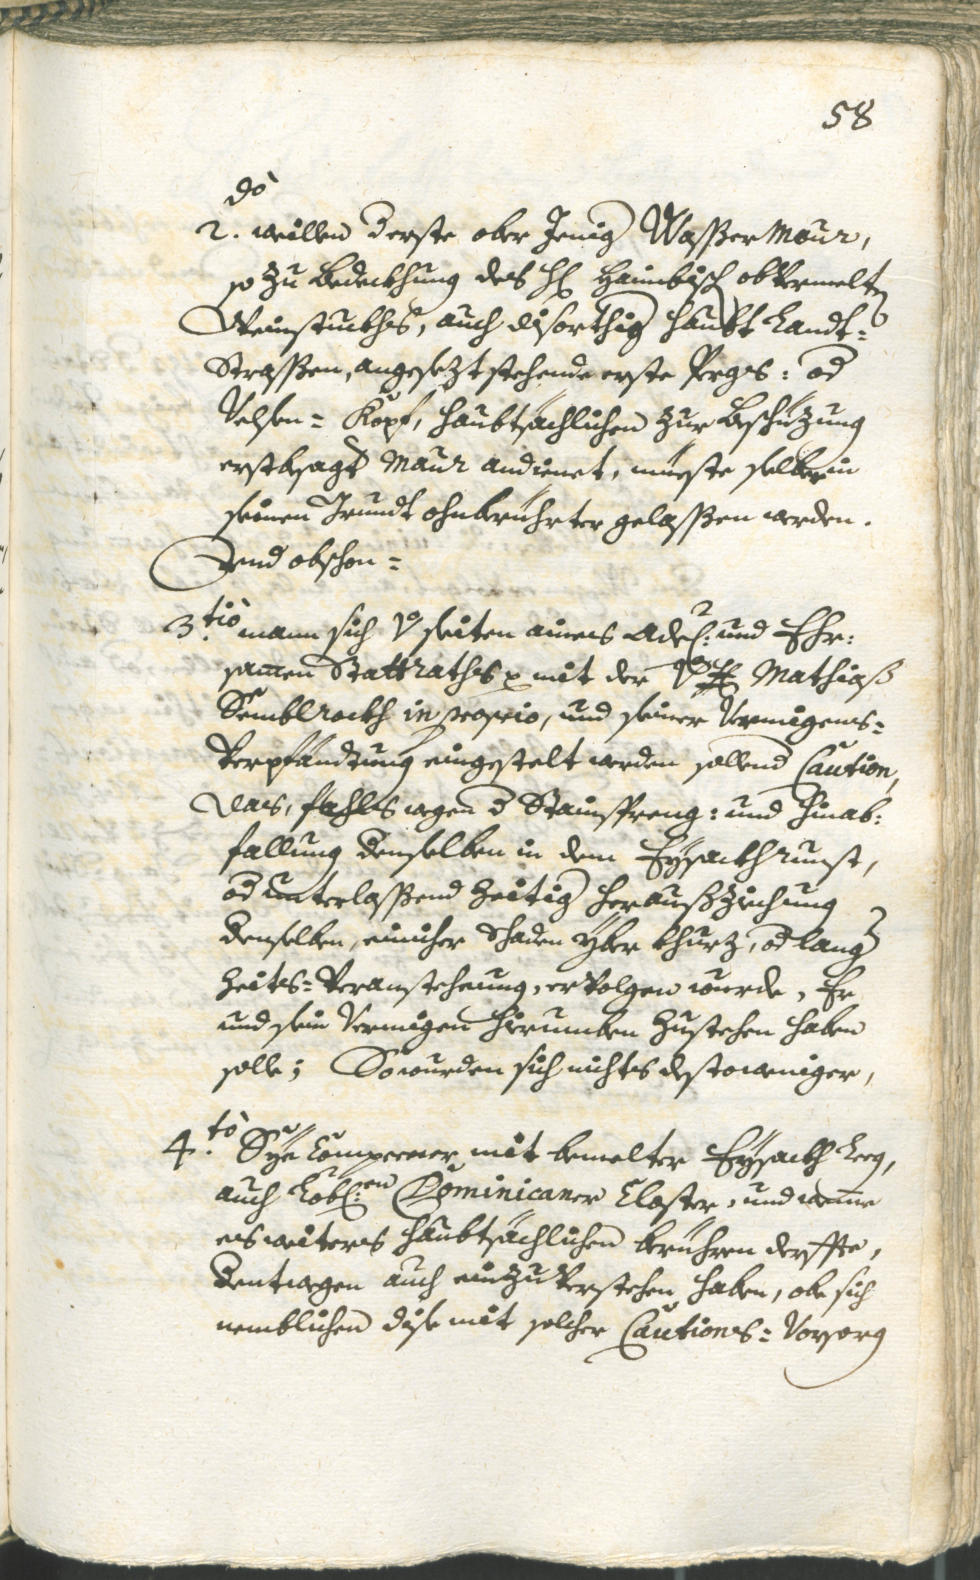 58
do
2. weillen d erste ober Jenig Wasser Maur,
so zu bedeckhung des H: Haimbisch obvermelt
Weinstuckhs, auch disorthig Haubt Landt=
Strassen, angesezt stehende erste Pergs: od
Velsen= Kopf, haubtsächlichen zur beschüzung
erstbesagt Maur andienet, müeste selber in
seinen Grundt ohnberührter gelassen werden.
Und obschon=
3.tio mann sich v seiten aines Adel: und Ehr:
samen Stattraths mit der v H Mathiaß
Semblrockh in proprio, und seiner Vermigens=
Verpfändtung eingestelt werden sollend Caution,
das, fahls wegen d Stainspreng: und hinab:
fallung denselben in dem Eysackhrunst,
od unterlassend zeitig heraußziehung
denselben, einicher Schaden yber khurz, od lang
Zeits= Veranstehung, ervolgen wurde, Er
und sein Vermigen hierumben zustehen haben
solle; So wurden sich nichts destoweniger,
4.to Sye Compreer mit bemelter Eysackh Leeg,
auch Löbl:en Dominicaner Closter, und wenne
es weiters haubtsächlichen berühren derffte,
dentwegen auch einzuverstehen haben, obe sich
nemblichen dise mit solcher Cautions= Vorsorg